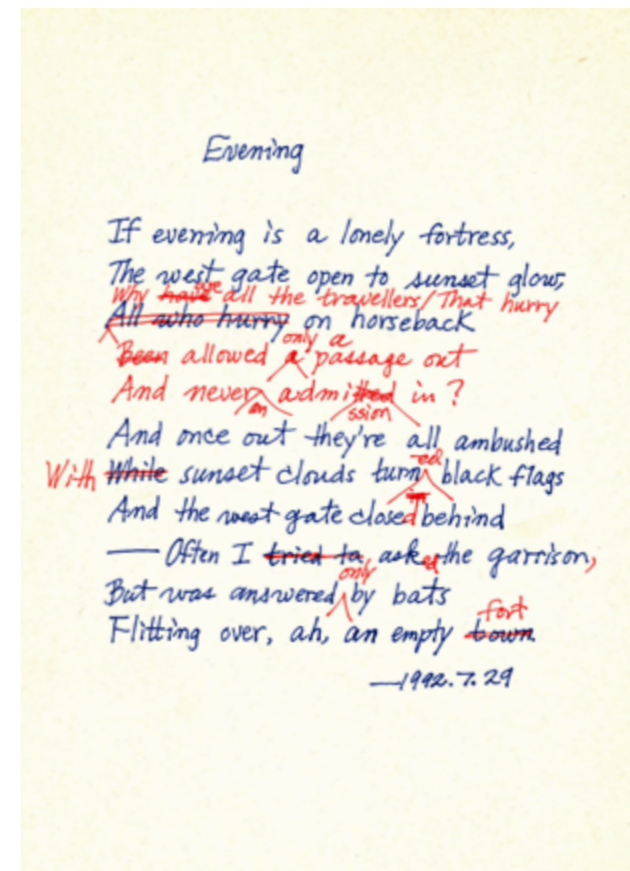 Evening
If evening is a lonely fortress,
The west gate open to sunset glow,
Why have are all the travellers/That hurry
All who hurry on horseback
Been allowed only a a passage out
And never an admitted ssion in?
And once out they're all ambushed
With While sunset clouds turn ed black flags
And the west gate closed behind
—— Often I tried to asked the garrison,
But was answered only by bats
Flitting over, ah, an empty town fort
—1992.7.29